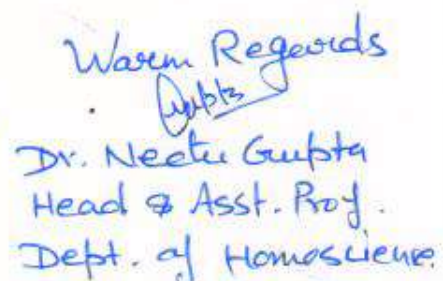 Warm Regards
Gupta
Dr. Neetu Gupta
Head & Asst. Prof.
Dept. of Homoscience.